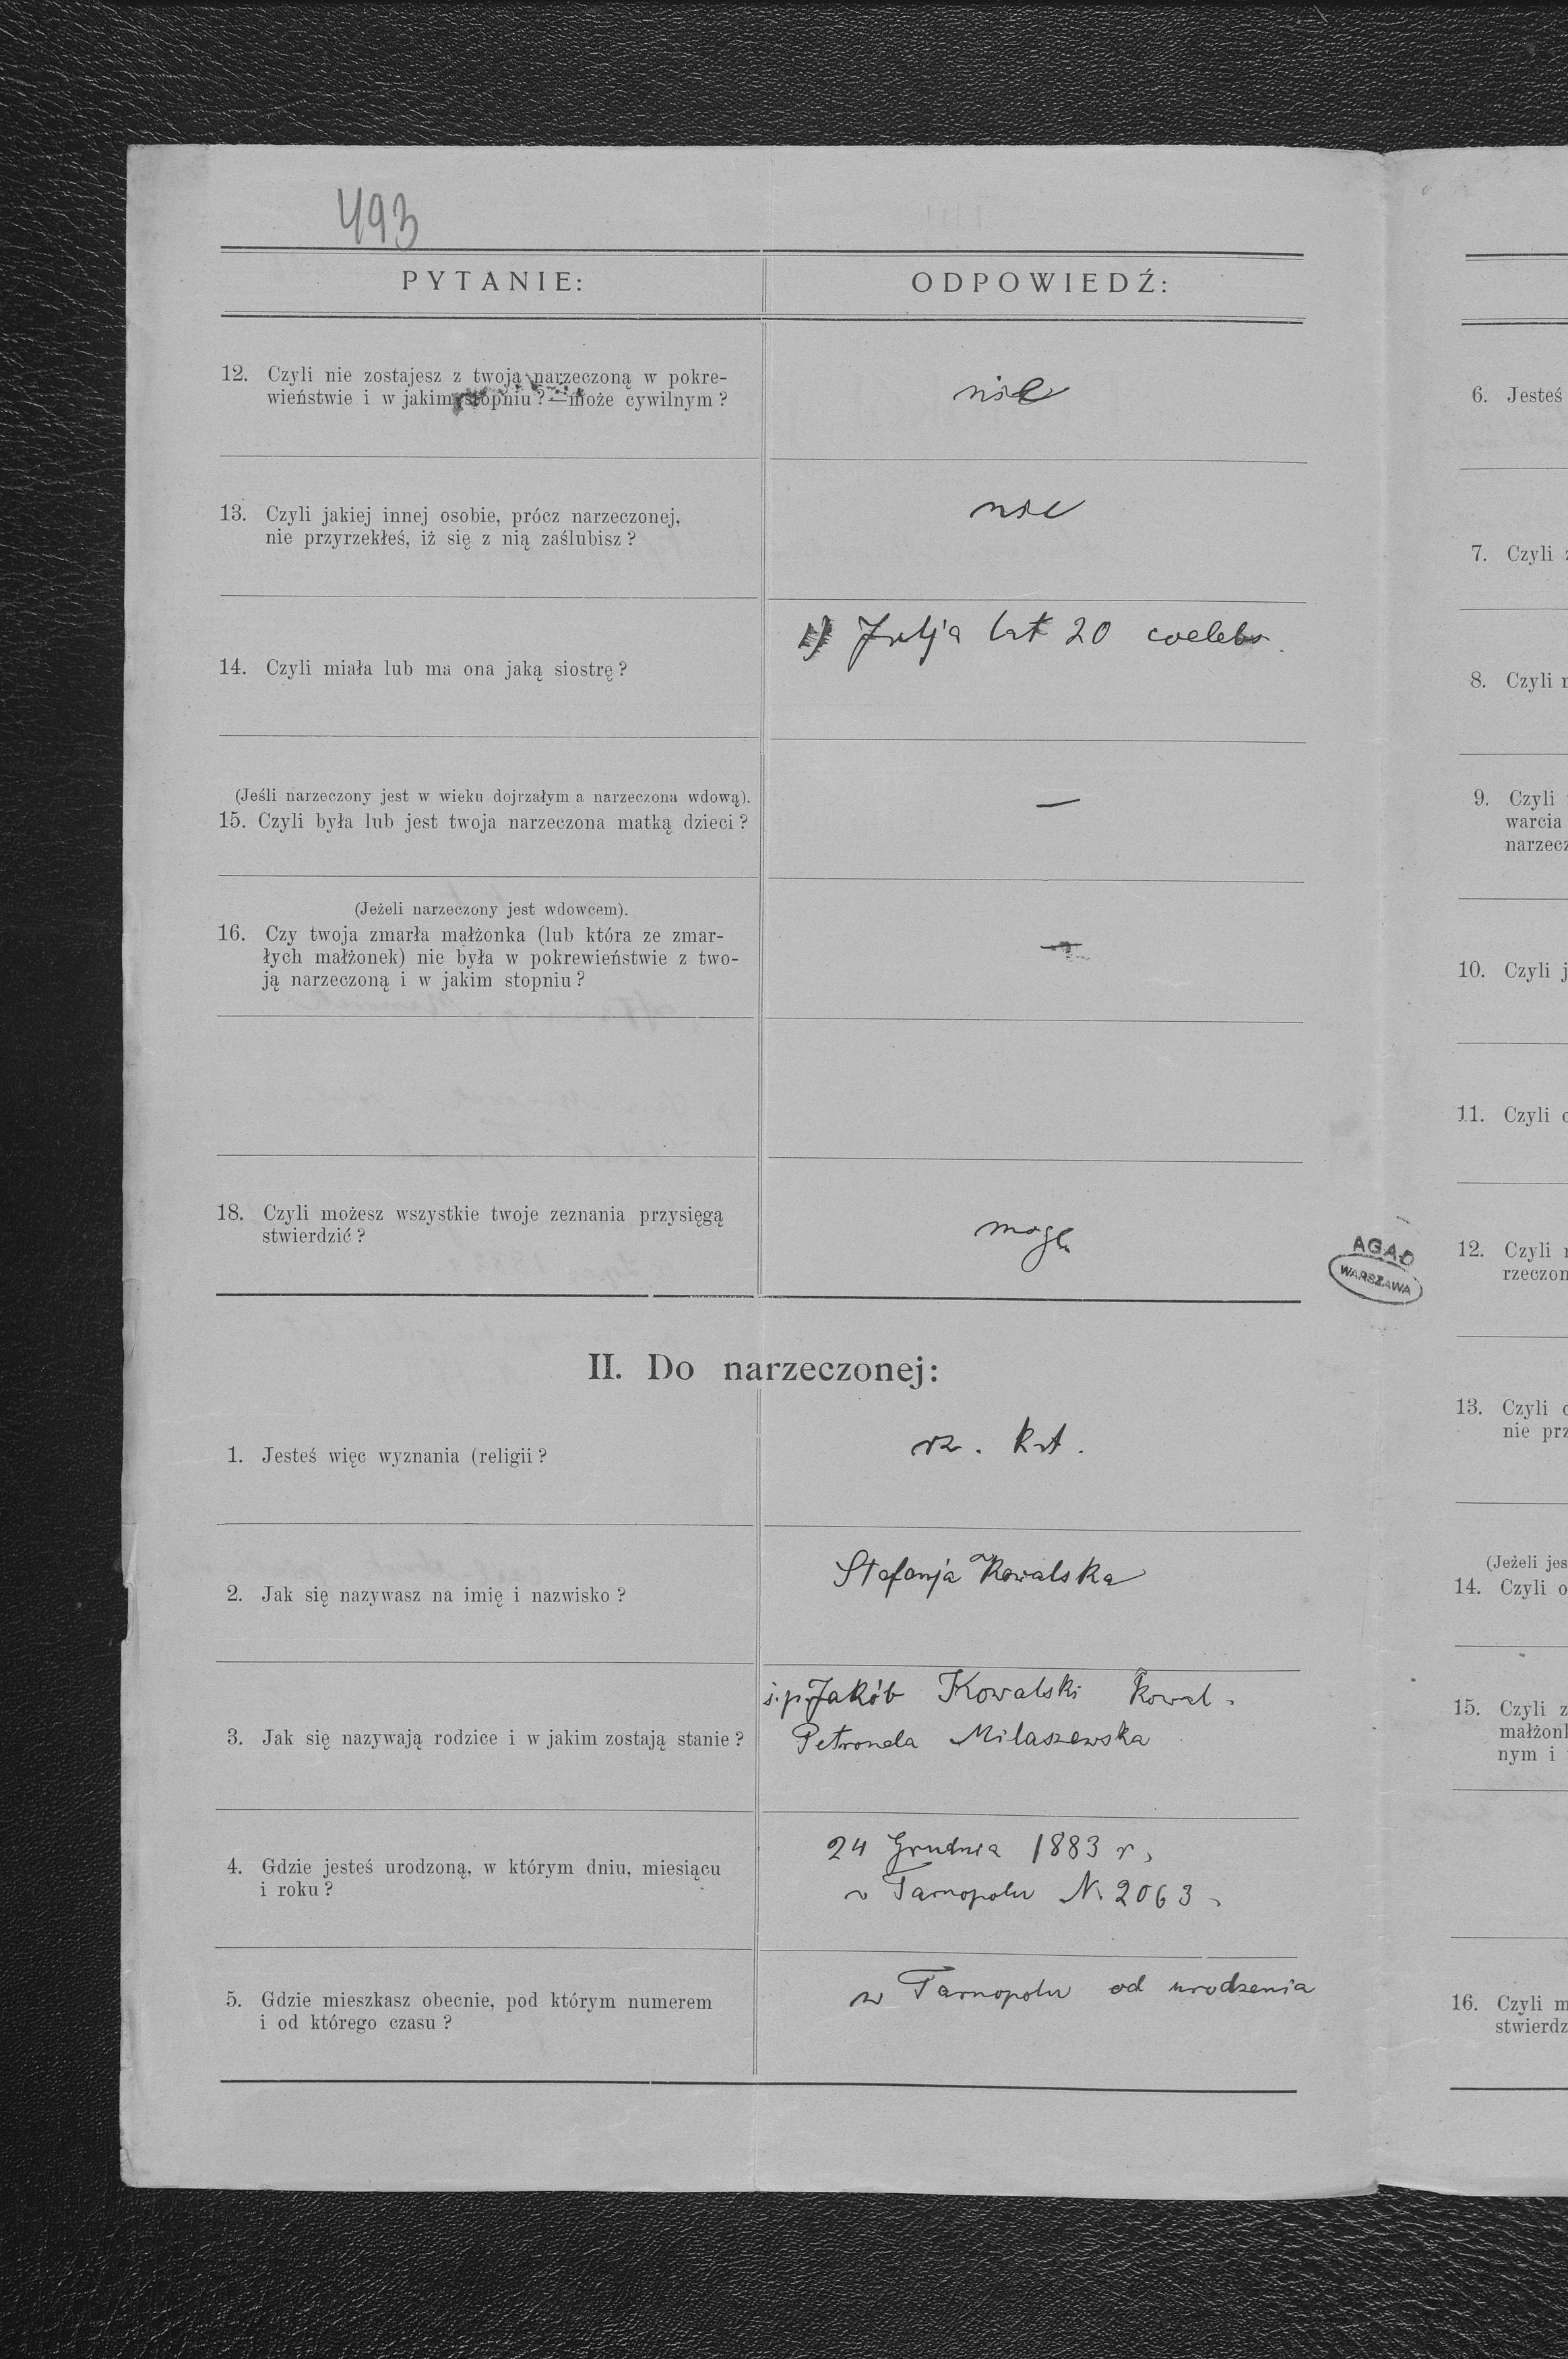 493
PYTANIE:
ODPOWIEDŹ:
12. Czyli nie zostajesz z twoją narzeczoną w pokre-
wieństwie i w jakim stopniu? — może cywilnym?
nie
13. Czyli jakiej innej osobie, prócz narzeczonej,
nie przyrzekłeś, iż się z nią zaślubisz?
nie
14. Czyli miała lub ma ona jaką siostrę?
1) Julja lat 20 coelebs.
(Jeśli narzeczony jest w wieku dojrzałym a narzeczona wdową).
15. Czyli była lub jest twoja narzeczona matką dzieci?
—
(Jeżeli narzeczony jest wdowcem).
16. Czy twoja zmarła małżonka (lub która ze zmar-
łych małżonek) nie była w pokrewieństwie z two-
ją narzeczoną i w jakim stopniu?
—
18. Czyli możesz wszystkie twoje zeznania przysięgą
stwierdzić?
mogę
AGAD
WARSZAWA
II. Do narzeczonej:
1. Jesteś więc wyznania (religii?
rz. kat.
2. Jak się nazywasz na imię i nazwisko?
Stefanja Kowalska
3. Jak się nazywają rodzice i w jakim zostają stanie?
ś.p. Jakób Kowalski kowal.
Petronela Milaszewska
4. Gdzie jesteś urodzoną, w którym dniu, miesiącu
i roku?
24 Grudnia 1883 r,
w Tarnopolu N. 2063.
5. Gdzie mieszkasz obecnie, pod którym numerem
i od którego czasu?
w Tarnopolu od urodzenia
6. Jesteś
7. Czyli
8. Czyli
9. Czyli
warcia
narzecz
10. Czyli j
11. Czyli
12. Czyli
rzeczon
13. Czyli
nie prz
(Jeżeli jes
14. Czyli o
15. Czyli z
małżonk
nym i
16. Czyli m
stwierdz